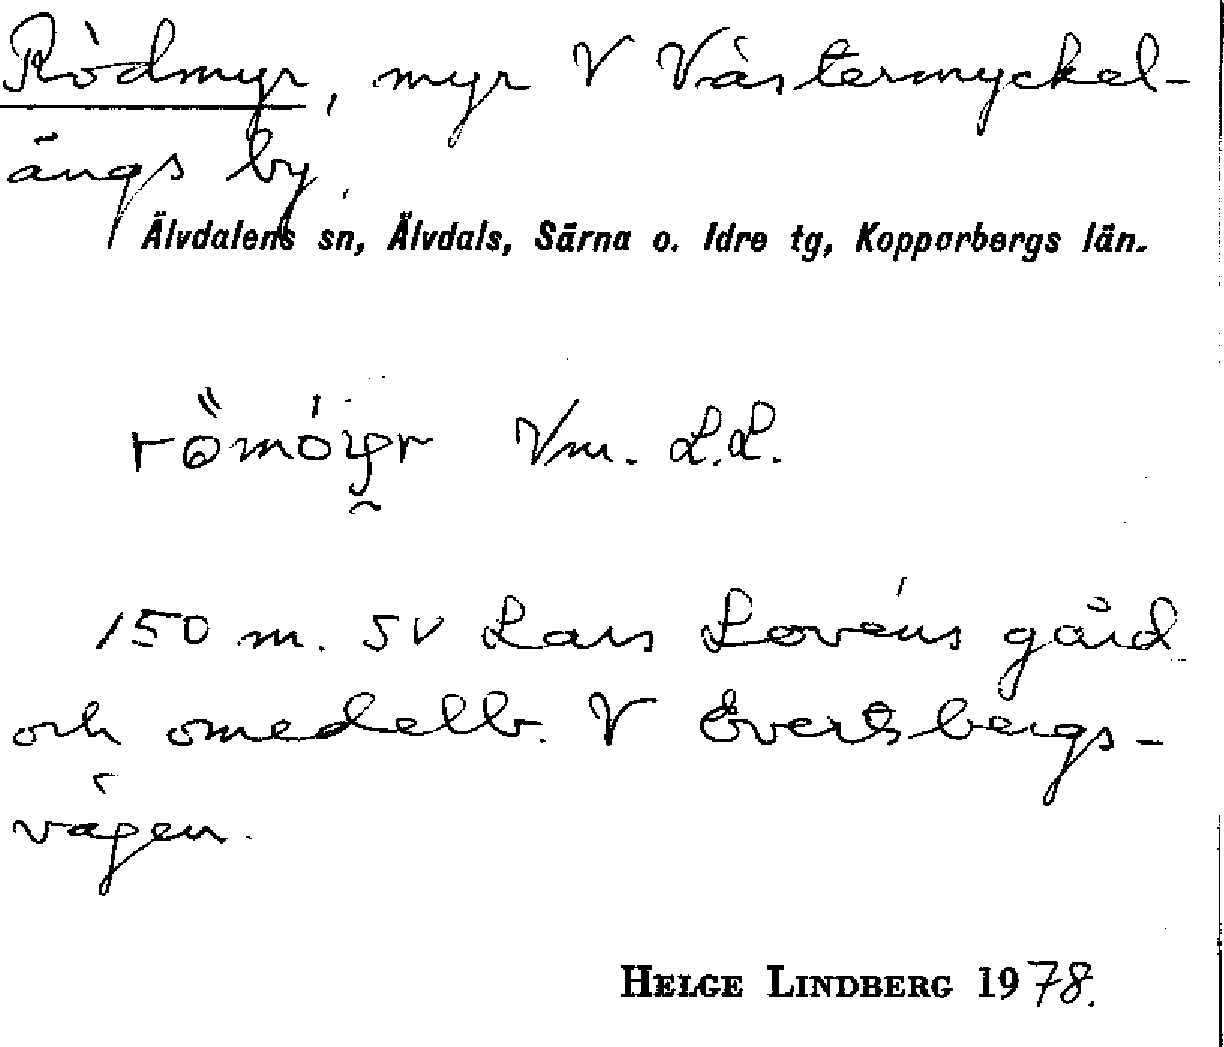 Rödmyr, myr V Västermyckel-
ängs by.
Älvdalens sn, Älvdals, Särna o. Idre tg, Kopparbergs län.
Vm. L.L.
150 m. SV Lars Lovéns gård
och omedelb. V Evertsbergs-
vägen.
HELGE LINDBERG 1978.